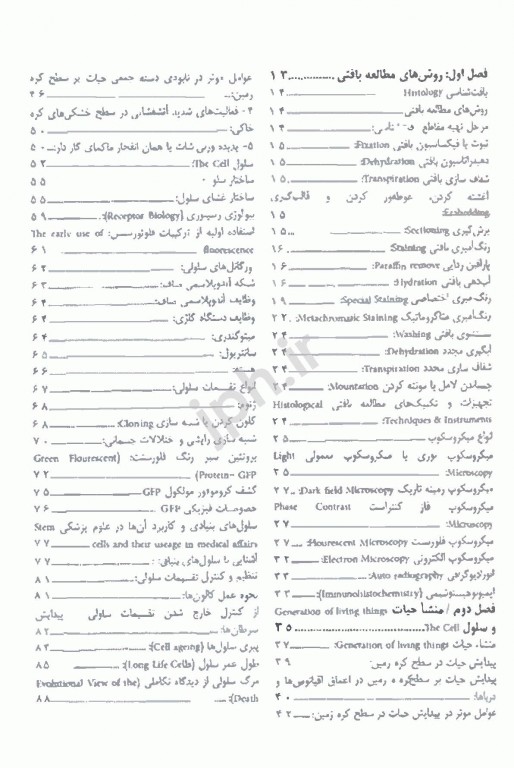 فصل اول: روش‌های مطالعه بافتی ............... ۱۳
بافت‌شناسی Histology ۱۴
روش‌های مطالعه بافتی ۱۴
مراحل تهیه مقاطع بافت‌شناسی: ۱۴
ثبوت یا فیکساسیون بافتی Fixation: ۱۵
دهیدراتاسیون بافتی Dehydration: ۱۵
شفاف سازی بافتی Transpiration: ۱۵
آغشته کردن، غوطه‌ور کردن و قالب‌گیری
Embedding: ۱۵
برش‌گیری Sectioning: ۱۵
رنگ‌آمیزی بافتی Staining: ۱۶
پارافین زدایی Paraffin remove: ۱۶
آبدهی بافتی Hydration: ۱۶
رنگ‌آمیزی اختصاصی Special Staining: ۱۹
رنگ‌آمیزی متاکروماتیک Metachromasic Staining: ۲۲
شستشوی بافتی Washing: ۲۴
آبگیری مجدد Dehydration: ۲۴
شفاف سازی مجدد Transpiration: ۲۴
چسباندن لامل یا مونته کردن Mountation: ۲۴
تجهیزات و تکنیک‌های مطالعه بافتی Histological
Techniques & Instruments: ۲۴
انواع میکروسکوپ ۲۵
میکروسکوپ نوری یا میکروسکوپ معمولی Light
Microscopy: ۲۵
میکروسکوپ زمینه تاریک Dark field Microscopy: ۲۷
میکروسکوپ فاز کنتراست Phase Contrast
Microscopy: ۲۷
میکروسکوپ فلورسنت Flourescent Microscopy: ۲۷
میکروسکوپ الکترونی Electron Microscopy: ۳۲
اتورادیوگرافی Auto radiography: ۳۳
ایمیونوهیستوشیمی (Immunohistochemistry): ۳۳
فصل دوم / منشأ حیات Generation of living things
و سلول The Cell ۳۵
منشاء حیات Generation of living things: ۳۷
پیدایش حیات در سطح کره زمین: ۳۹
پیدایش حیات بر سطح کره زمین در اعماق اقیانوس‌ها و
دریاها: ۴۰
عوامل موثر در پیدایش حیات در سطح کره زمین: ۴۲
عوامل موثر در نابودی دسته جمعی حیات بر سطح کره
زمین: ۴۶
۴- فعالیت‌های شدید آتشفشانی در سطح خشکی‌های کره
خاکی: ۵۰
۵- پدیده ورنی شات یا همان انفجار ماگمای گاز دار: ۵۰
سلول The Cell: ۵۲
ساختار سلول ۵۵
ساختار غشای سلول: ۵۵
بیولوژی رسپتوری (Receptor Biology): ۵۹
استفاده اولیه از ترکیبات فلوئورسس: The early use of
fluorescence ۶۱
ورگانل‌های سلولی: ۶۲
شبکه آندوپلاسمی صاف: ۶۳
وظایف آندوپلاسمی صاف: ۶۴
وظایف دستگاه گلژی: ۶۴
میتوکندری: ۶۴
سانتریول: ۶۵
هسته: ۶۶
انواع تقسیمات سلولی: ۶۷
ژنوم: ۶۸
کلون کردن یا شبیه سازی Cloning: ۶۸
شبیه سازی زایشی و اختلالات جسمانی: ۷۰
پروتئین سبز رنگ فلورسنت: (Green Flourescent
Protein- GFP) ۷۲
کشف کروموفور مولکول GFP ۷۵
خصوصیات فیزیکی GFP ۷۶
سلول‌های بنیادی و کاربرد آن‌ها در علوم پزشکی Stem
cells and their useage in medical affairs ۷۷
آشنایی با سلول‌های بنیادی: ۷۷
تنظیم و کنترل تقسیمات سلولی: ۸۱
نحوه عمل کالون‌ها: ۸۱
از کنترل خارج شدن تقسیمات سلولی پیدایش
سرطان‌ها: ۸۲
پیری سلول‌ها (Cell ageing): ۸۴
طول عمر سلول (Long Life Cells): ۸۵
مرگ سلولی از دیدگاه تکاملی (Evolutional View of the
Death): ۸۸
iph.ir